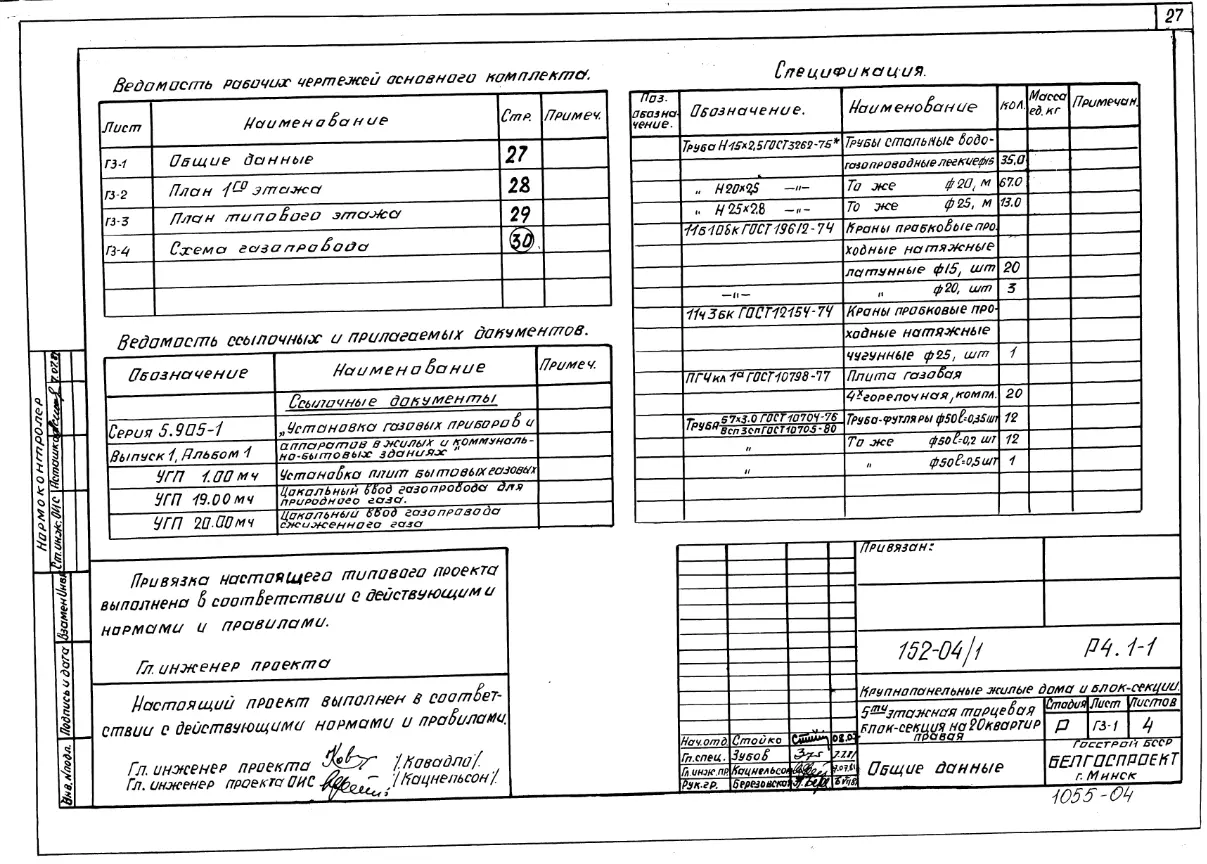 27
Ведомость рабочих чертежей основного комплекта.
Лист Наименование Стр. Примеч.
ГЗ-1 Общие данные 27
ГЗ-2 План 1го этажа 28
ГЗ-3 План типового этажа 29
ГЗ-4 Схема газопровода 30
Ведомость ссылочных и прилагаемых документов.
Обозначение Наименование Примеч.
Ссылочные документы
Серия 5.905-1 „Установка газовых приборов и
Выпуск 1, Альбом 1 аппаратов в жилых и коммуналь-
но-бытовых зданиях"
УГП 1.00 мч Установка плит бытовых газовых
УГП 19.00 мч Цокальный ввод газопровода для
природного газа.
УГП 20.00 мч Цокальный ввод газопровода
сжиженного газа
Привязка настоящего типового проекта
выполнена в соответствии с действующими
нормами и правилами.
Гл. инженер проекта
Настоящий проект выполнен в соответ-
ствии с действующими нормами и правилами.
Гл. инженер проекта /.Ковадло/.
Гл. инженер проекта ОИС /Кацнельсон/.
Спецификация.
Поз. обозна-чение. Обозначение. Наименование кол. Масса ед. кг Примечан.
Труба Н-15х2,5 ГОСТ 3262-75* Трубы стальные водо-
газопроводные легкие ф15 35,0
„ Н20х2,5 —„— То же ф20, м 67.0
„ Н 25х2.8 —„— То же ф25, м 13.0
11Б10бк ГОСТ 19612-74 Краны пробковые про-
ходные натяжные
латунные ф15, шт 20
—„— „ ф20, шт 3
11ч3бк ГОСТ 12154-74 Краны пробковые про-
ходные натяжные
чугунные ф25, шт 1
ПГЧкл 1а ГОСТ 10798-77 Плита газовая
4х горелочная, компл. 20
Труба 57х3.0 ГОСТ 10704-76 Труба-футляры ф50 ℓ=0,35шт 12
ВСп3сп ГОСТ 10705-80
„ То же ф50 ℓ=0,2 шт 12
„ „ ф50 ℓ=0,5 шт 1
Привязан:
152-04/1 Р4.1-1
Крупнопанельные жилые дома и блок-секции.
5ти этажная торцевая
блок-секция на 20 квартир
правая
Стадия Лист Листов
Р ГЗ-1 4
Общие данные
Госстрой БССР
БЕЛГОСПРОЕКТ
г. Минск
Нач.отд. Стойко
Гл.спец. Зубов
Гл.инж.пр. Кацнельсон
Рук.гр. Березовская
1055-04
Нормоконтролер
Ст.инж.ОИС
Взамен Инв.
Подпись и дата
Инв.№подл.